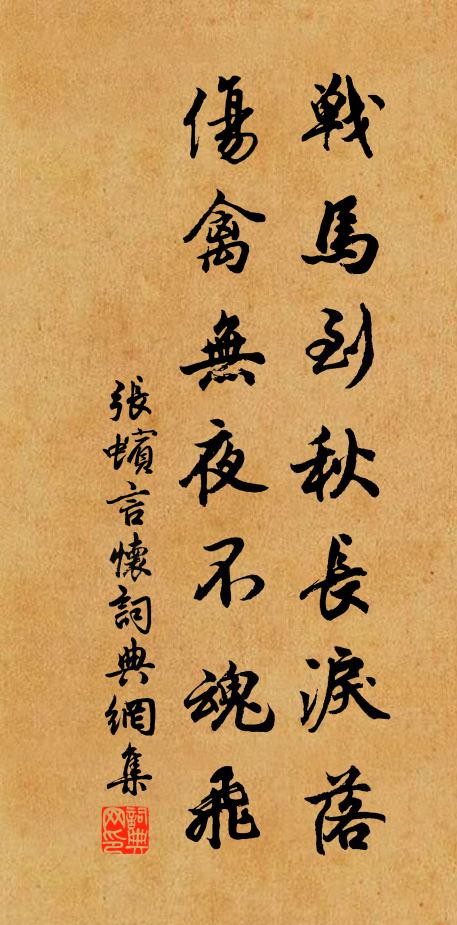 戦馬到秋長淚落
傷禽無夜不魂飛
張蠙言懷詞典網集
詞典网印